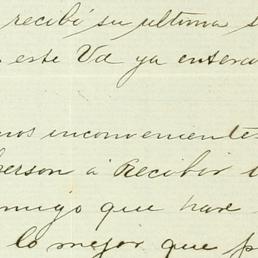 recibí su ultima s
este Vd ya entera
nos inconveniente
person á Recibir
migo que hace
lo mejor que p